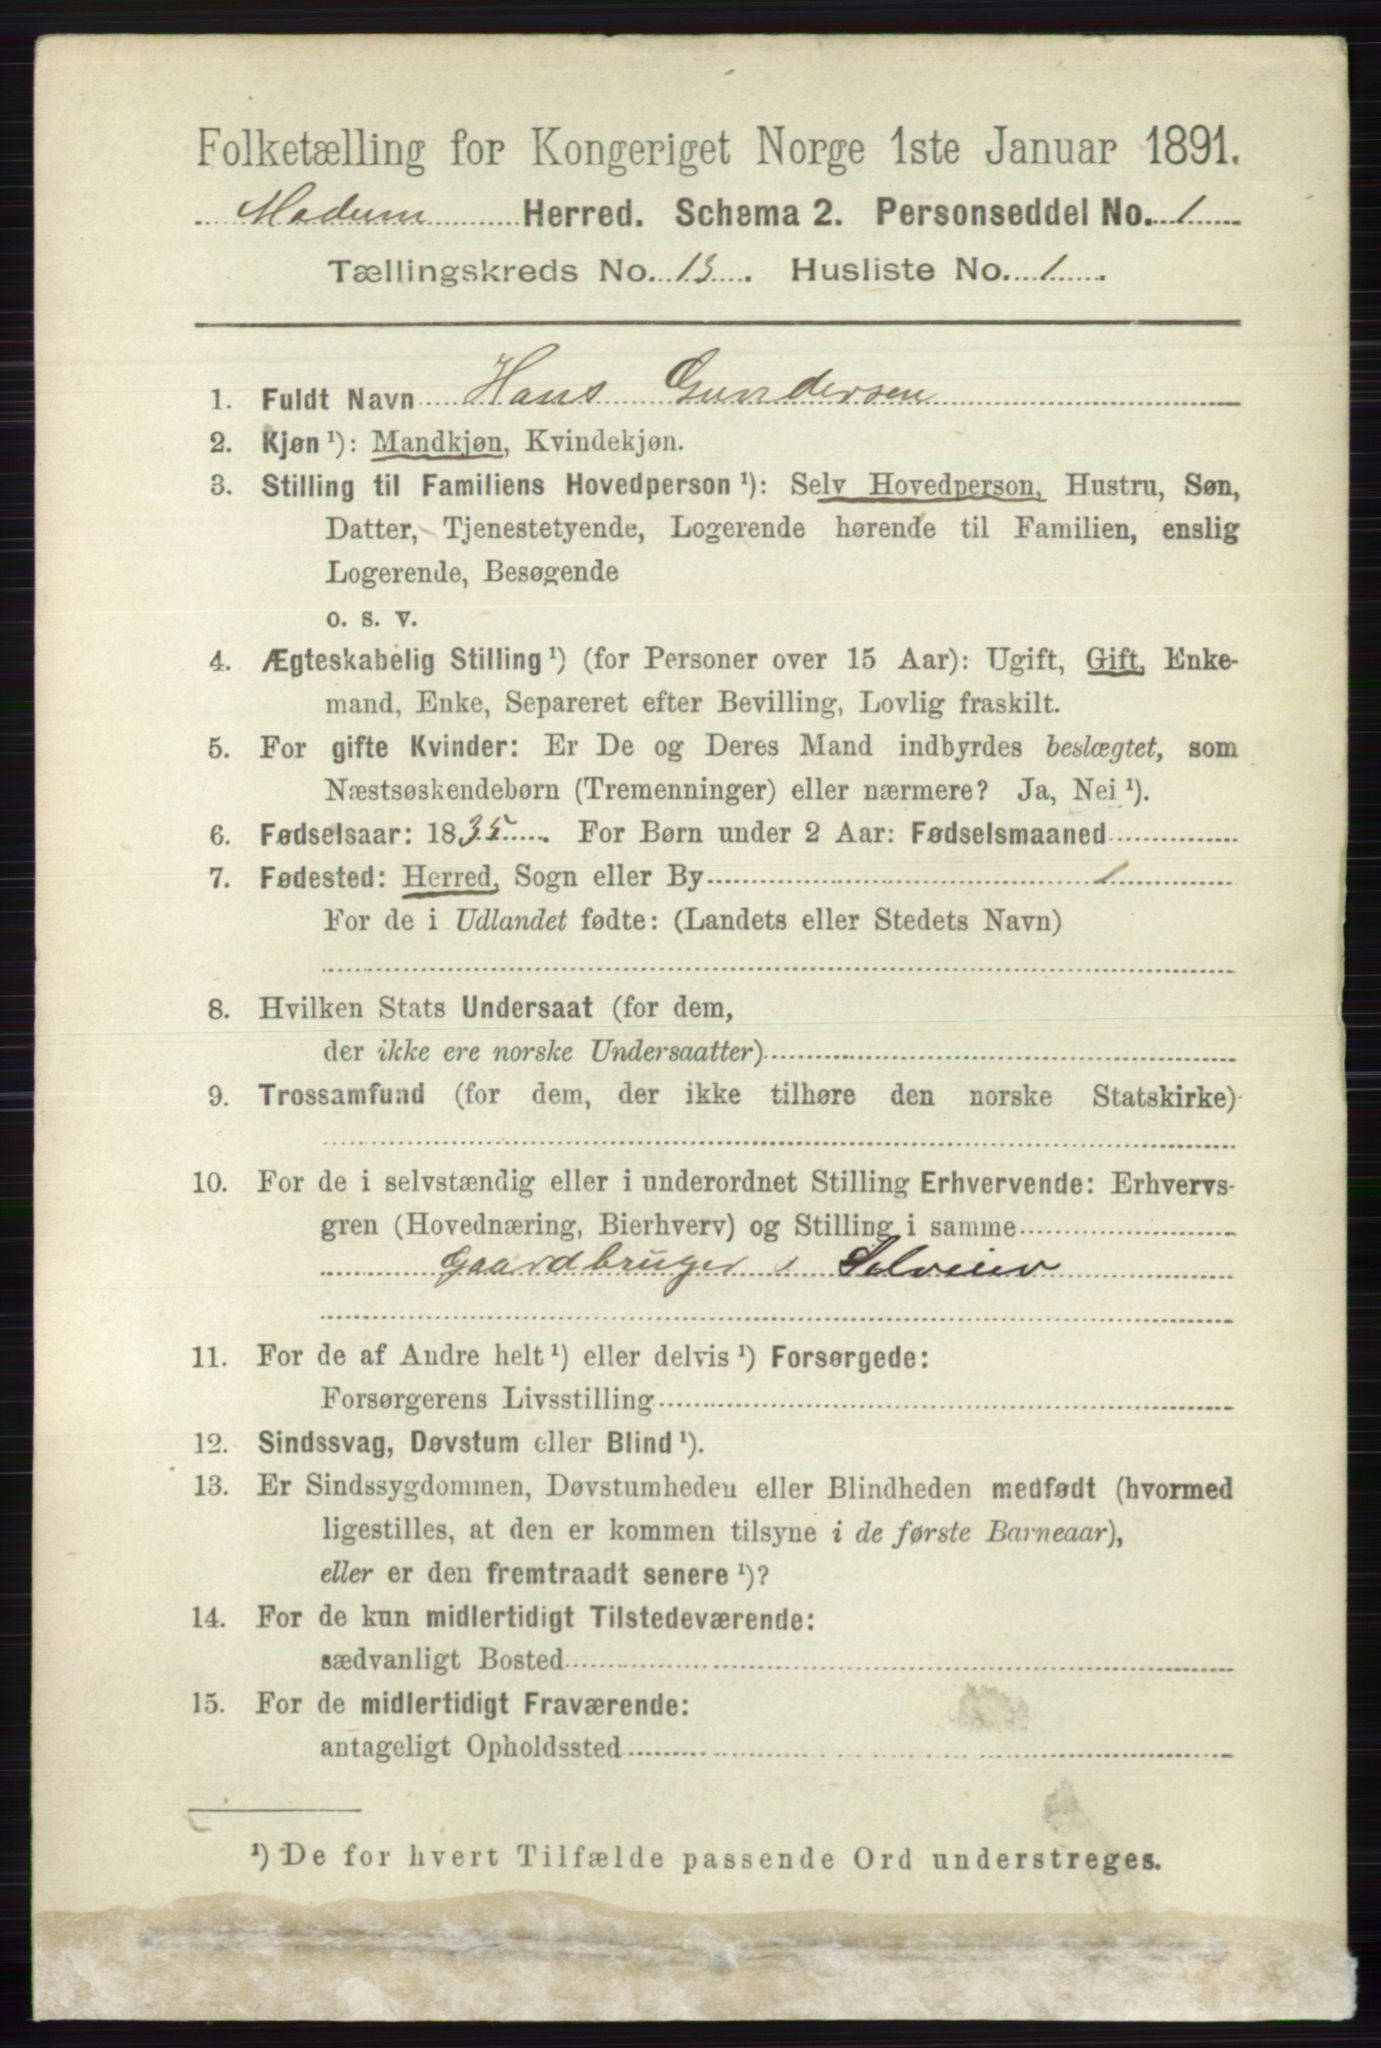 Folketælling for Kongeriget Norge 1ste Januar 1891.
Modum Herred. Schema 2. Personseddel No. 1
Tællingskreds No. 13. Husliste No. 1.
1. Fuldt Navn Hans Gundersen
2. Kjøn ¹): Mandkjøn, Kvindekjøn.
3. Stilling til Familiens Hovedperson ¹): Selv Hovedperson, Hustru, Søn,
Datter, Tjenestetyende, Logerende hørende til Familien, enslig
Logerende, Besøgende
o. s. v.
4. Ægteskabelig Stilling ¹) (for Personer over 15 Aar): Ugift, Gift, Enke-
mand, Enke, Separeret efter Bevilling, Lovlig fraskilt.
5. For gifte Kvinder: Er De og Deres Mand indbyrdes beslægtet, som
Næstsøskendebørn (Tremenninger) eller nærmere? Ja, Nei ¹).
6. Fødselsaar: 1835. For Børn under 2 Aar: Fødselsmaaned
7. Fødested: Herred, Sogn eller By 1
For de i Udlandet fødte: (Landets eller Stedets Navn)
8. Hvilken Stats Undersaat (for dem,
der ikke ere norske Undersaatter)
9. Trossamfund (for dem, der ikke tilhøre den norske Statskirke)
10. For de i selvstændig eller i underordnet Stilling Erhvervende: Erhvervs-
gren (Hovednæring, Bierhverv) og Stilling i samme
Gaardbruger Selveier
11. For de af Andre helt ¹) eller delvis ¹) Forsørgede:
Forsørgerens Livsstilling
12. Sindssvag, Døvstum eller Blind ¹).
13. Er Sindssygdommen, Døvstumheden eller Blindheden medfødt (hvormed
ligestilles, at den er kommen tilsyne i de første Barneaar),
eller er den fremtraadt senere ¹)?
14. For de kun midlertidigt Tilstedeværende:
sædvanligt Bosted
15. For de midlertidigt Fraværende:
antageligt Opholdssted
¹) De for hvert Tilfælde passende Ord understreges.